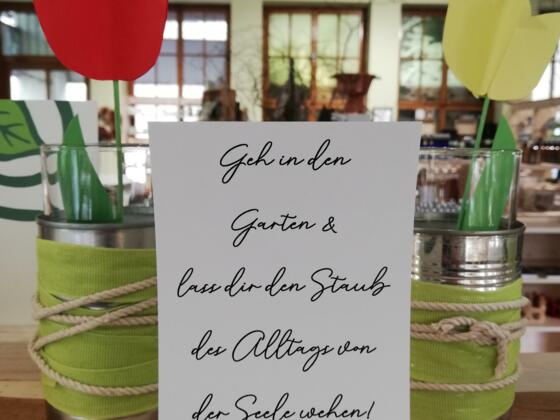 Geh in den
Garten &
lass dir den Staub
des Alltags von
der Seele wehen!